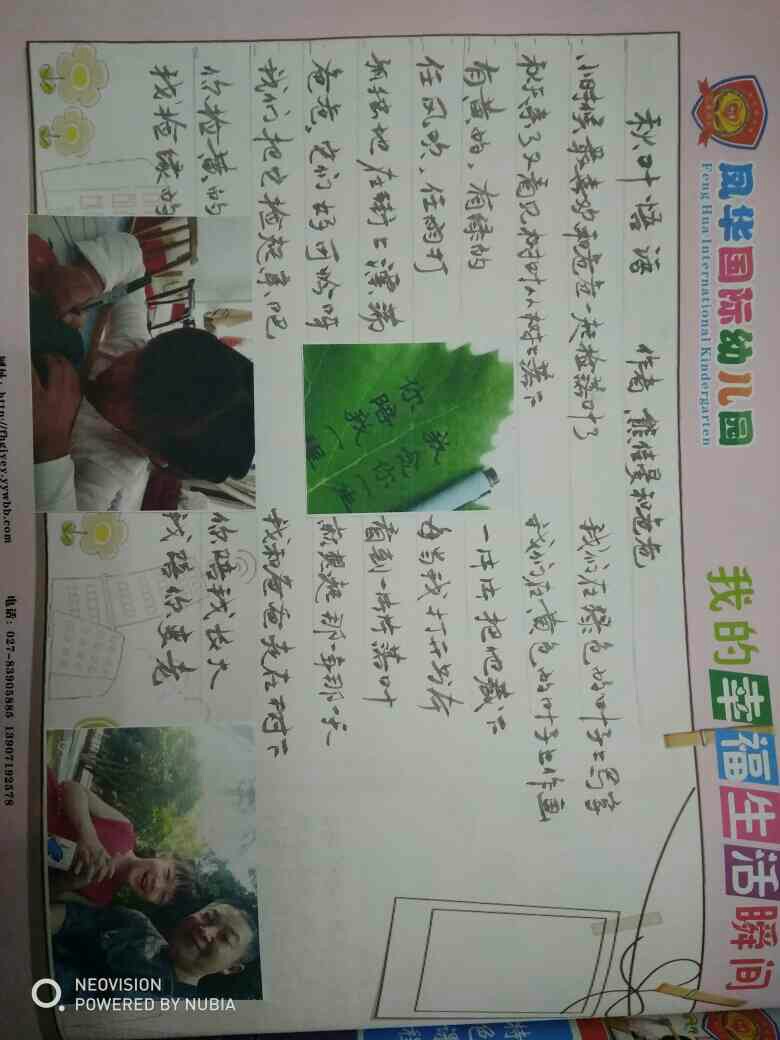 风华国际幼儿园
Feng Hua International Kindergarten
我的幸福生活瞬间
秋叶悟语 作者 熊佳曼和爸爸
小时候最喜欢和爸爸一起捡落叶了
秋天来了又看见树叶从树上落下
有黄的，有绿的
任风吹，任雨打
孤独地在街上漂荡
爸爸，它们好可怜呀
我们把它捡起来吧
你捡黄的
我捡绿的
我们在绿色的叶子上写字
我们在黄色的叶子上作画
一片片把他藏下
每当我打开书本
看到一片片落叶
就想起那一年那一天
我和爸爸走在树下
你陪我长大
我陪你变老
你陪我一程
我念你一生
http://fhdjyey.yywbb.com 电话：027-83905885 13907192578
特色课
NEOVISION
POWERED BY NUBIA